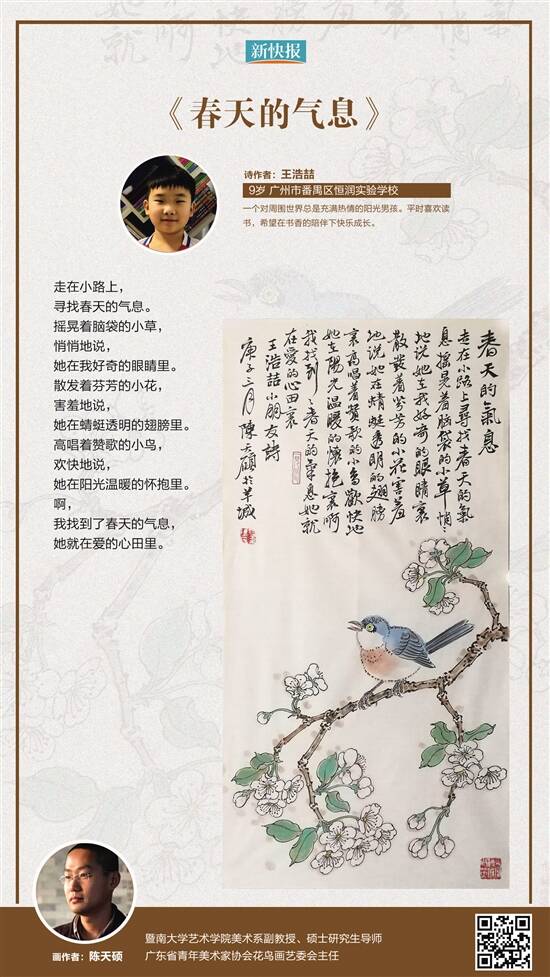 新快报
《春天的气息》
诗作者：王浩喆
9岁 广州市番禺区恒润实验学校
一个对周围世界总是充满热情的阳光男孩。平时喜欢读
书，希望在书香的陪伴下快乐成长。
走在小路上，
寻找春天的气息。
摇晃着脑袋的小草，
悄悄地说，
她在我好奇的眼睛里。
散发着芬芳的小花，
害羞地说，
她在蜻蜓透明的翅膀里。
高唱着赞歌的小鸟，
欢快地说，
她在阳光温暖的怀抱里。
啊，
我找到了春天的气息，
她就在爱的心田里。
春天的氣息
走在小路上尋找春天的氣
息搖晃着腦袋的小草悄悄
地说她在我好奇的眼睛裏
散發着芬芳的小花害羞
地说她在蜻蜓透明的翅膀
裏高唱着贊歌的小鸟歡快地
她在陽光温暖的懷抱裏啊
我找到了春天的氣息她就
在愛的心田裏
王浩喆小朋友詩
庚子三月陳天碩於羊城
画作者：陈天硕
暨南大学艺术学院美术系副教授、硕士研究生导师
广东省青年美术家协会花鸟画艺委会主任